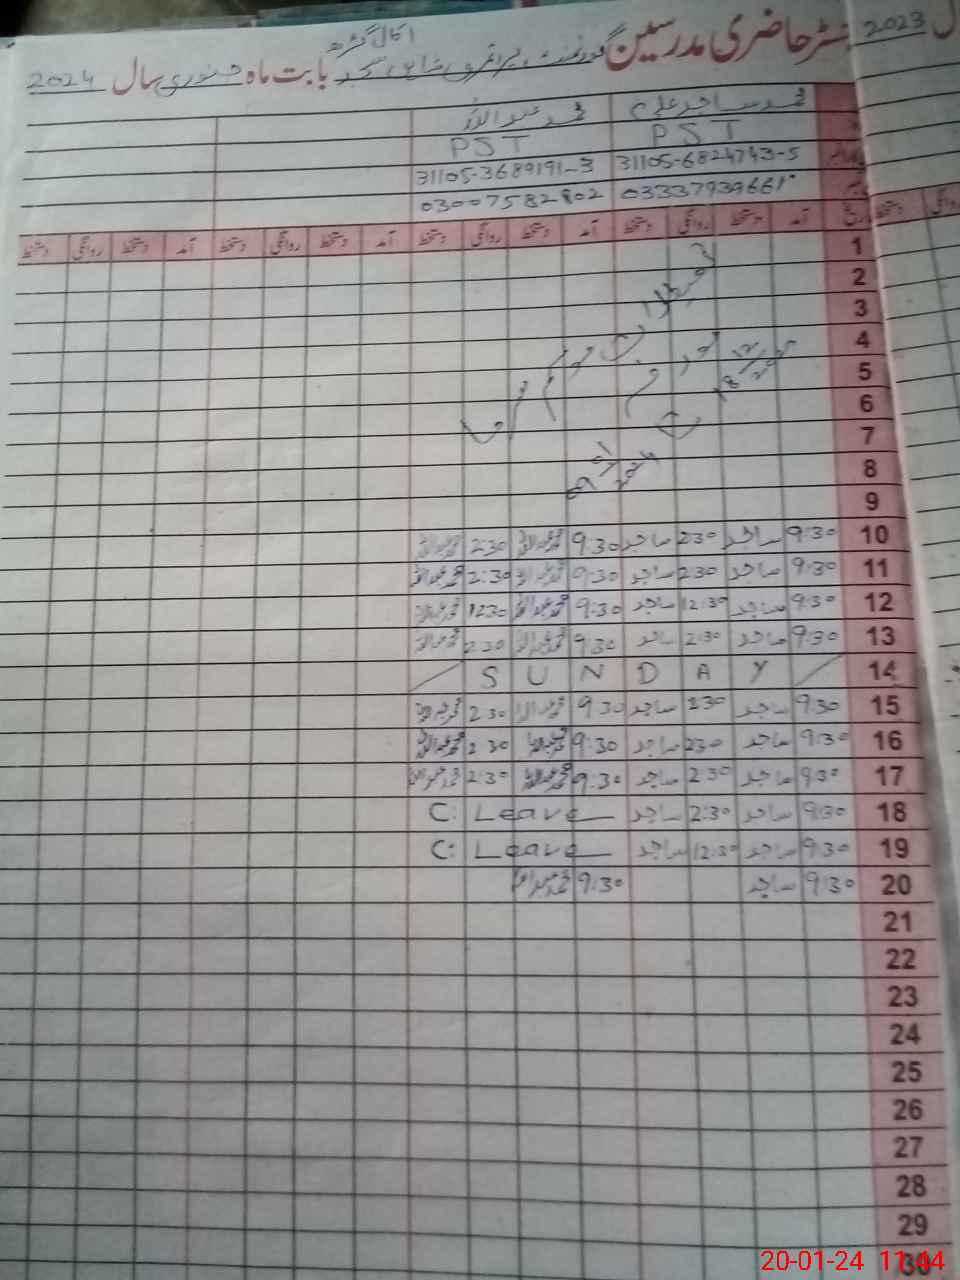 2023
رجسٹر حاضری مدرسین گورنمنٹ بابت ماہ جنوری سال 2024
محمد ساجد علی محمد عبداللہ
PST PST
31105-6824743-5 31105-3689191-3
03337939661 03007582802
تاریخ آمد دستخط روانگی دستخط آمد دستخط روانگی دستخط آمد دستخط روانگی دستخط آمد دستخط روانگی دستخط
1
2
3
4
5
6
7
8
9
10 9:30 ساجد 2:30 ساجد 9:30 محمد عبداللہ 2:30 محمد عبداللہ
11 9:30 ساجد 2:30 ساجد 9:30 محمد عبداللہ 2:30 محمد عبداللہ
12 9:30 ساجد 12:30 ساجد 9:30 محمد عبداللہ 1230 محمد عبداللہ
13 9:30 ساجد 2:30 ساجد 9:30 محمد عبداللہ 2:30 محمد عبداللہ
14 SUNDAY
15 9:30 ساجد 2:30 ساجد 9:30 محمد عبداللہ 2:30 محمد عبداللہ
16 9:30 ساجد 2:30 ساجد 9:30 محمد عبداللہ 2:30 محمد عبداللہ
17 9:30 ساجد 2:30 ساجد 9:30 محمد عبداللہ 2:30 محمد عبداللہ
18 9:30 ساجد 2:30 ساجد C: Leave
19 9:30 ساجد 12:30 ساجد C: Leave
20 9:30 ساجد 9:30 محمد عبداللہ
21
22
23
24
25
26
27
28
29
30
20-01-24 11:44